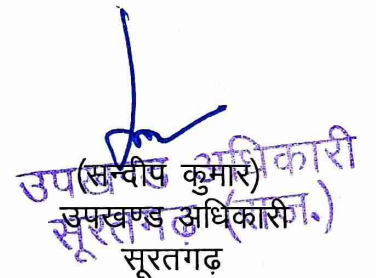 (सन्दीप कुमार)
उपखण्ड अधिकारी
सूरतगढ़
उपखण्ड अधिकारी
सूरतगढ़ (राज.)